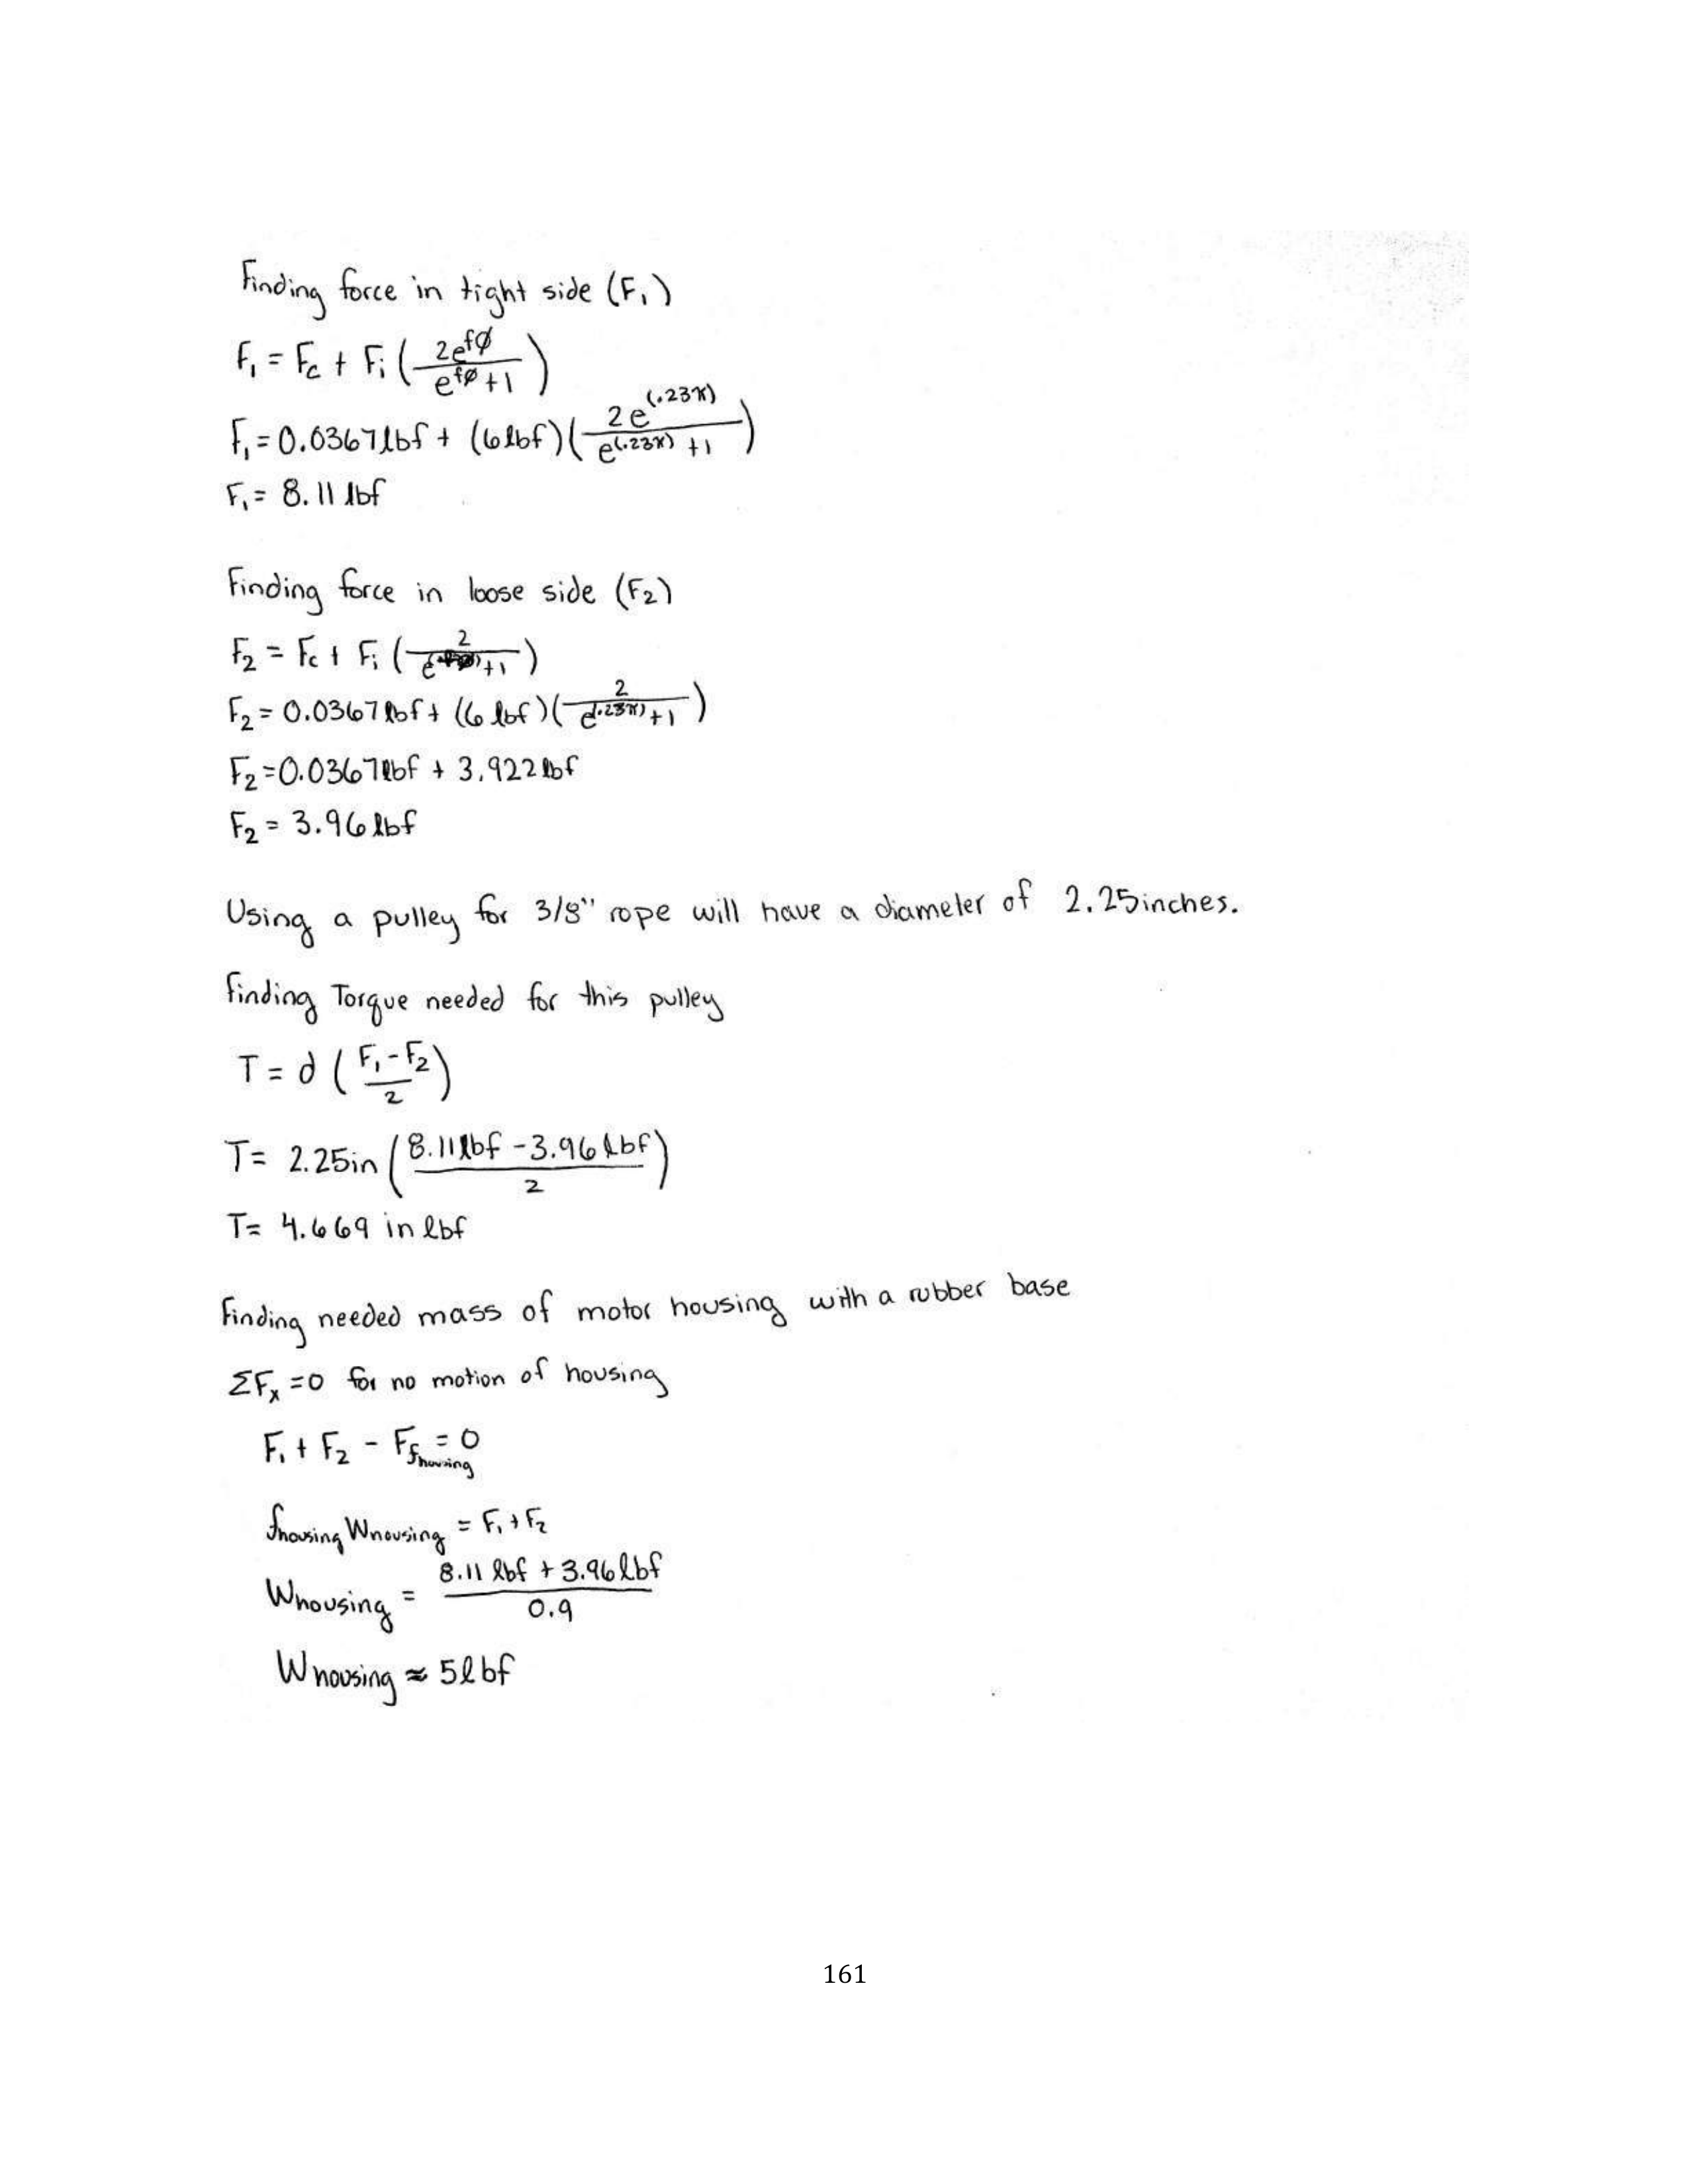 Finding force in tight side (F₁)
F₁ = Fc + Fi ( 2e^fø / e^fø +1 )
F₁ = 0.0367 lbf + (6 lbf) ( 2e^(.23π) / e^(.23π) +1 )
F₁ = 8.11 lbf
Finding force in loose side (F₂)
F₂ = Fc + Fi ( 2 / e +1 )
F₂ = 0.0367 lbf + (6 lbf) ( 2 / e^(.23π) +1 )
F₂ = 0.0367 lbf + 3.922 lbf
F₂ = 3.96 lbf
Using a pulley for 3/8" rope will have a diameter of 2.25 inches.
Finding Torque needed for this pulley
T = d ( F₁ - F₂ / 2 )
T = 2.25in ( 8.11 lbf - 3.96 lbf / 2 )
T = 4.669 in lbf
Finding needed mass of motor housing with a rubber base
ΣFx = 0 for no motion of housing
F₁ + F₂ - Ff housing = 0
fhousing Whousing = F₁ + F₂
Whousing = 8.11 lbf + 3.96 lbf / 0.9
Whousing ≈ 5 lbf
161